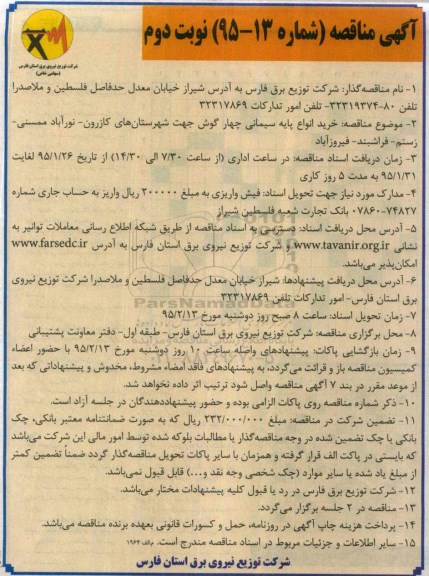 آگهی مناقصه (شماره ۱۳-۹۵) نوبت دوم
شرکت توزیع نیروی برق استان فارس
(سهامی خاص)
۱- نام مناقصه‌گذار: شرکت توزیع برق فارس به آدرس شیراز خیابان معدل حدفاصل فلسطین و ملاصدرا
تلفن ۸۰-۳۲۳۱۹۳۷۴- تلفن امور تدارکات ۳۲۳۱۷۸۶۹
۲- موضوع مناقصه: خرید انواع پایه سیمانی چهار گوش جهت شهرستان‌های کازرون- نورآباد ممسنی-
رستم- فراشبند- فیروزآباد
۳- زمان دریافت اسناد مناقصه: در ساعت اداری (از ساعت ۷/۳۰ الی ۱۴/۳۰) از تاریخ ۹۵/۱/۲۶ لغایت
۹۵/۱/۳۱ به مدت ۵ روز کاری
۴- مدارک مورد نیاز جهت تحویل اسناد: فیش واریزی به مبلغ ۲۰۰۰۰۰ ریال واریز به حساب جاری شماره
۰۷۸۶۰-۷۴۸۲۷ بانک تجارت شعبه فلسطین شیراز
۵- آدرس محل دریافت اسناد: دسترسی به اسناد مناقصه از طریق شبکه اطلاع رسانی معاملات توانیر به
نشانی www.tavanir.org.ir و شرکت توزیع نیروی برق استان فارس به آدرس www.farsedc.ir
امکان‌پذیر می‌باشد.
۶- آدرس محل دریافت پیشنهادها: شیراز خیابان معدل حدفاصل فلسطین و ملاصدرا شرکت توزیع نیروی
برق استان فارس- امور تدارکات تلفن ۳۲۳۱۷۸۶۹
۷- زمان تحویل اسناد: ساعت ۸ صبح روز دوشنبه مورخ ۹۵/۲/۱۳
۸- محل برگزاری مناقصه: شرکت توزیع نیروی برق استان فارس- طبقه اول- دفتر معاونت پشتیبانی
۹- زمان بازگشایی پاکات: پیشنهادهای واصله ساعت ۱۰ روز دوشنبه مورخ ۹۵/۲/۱۳ با حضور اعضاء
کمیسیون مناقصه باز و قرائت می‌گردد، به پیشنهادهای فاقد امضاء مشروط، مخدوش و پیشنهاداتی که بعد
از موعد مقرر در بند ۷ آگهی مناقصه واصل شود ترتیب اثر داده نخواهد شد.
۱۰- ذکر شماره مناقصه روی پاکات الزامی بوده و حضور پیشنهاددهندگان در جلسه آزاد است.
۱۱- تضمین شرکت در مناقصه: مبلغ ۲۳۲/۰۰۰/۰۰۰ ریال که به صورت ضمانتنامه معتبر بانکی، چک
بانکی یا چک تضمین شده در وجه مناقصه‌گذار یا مطالبات بلوکه شده توسط امور مالی این شرکت می‌باشد
که بایستی در پاکت الف قرار گرفته و همزمان با سایر پاکات تحویل مناقصه‌گذار گردد ضمناً تضمین کمتر
از مبلغ یاد شده یا سایر موارد (چک شخصی وجه نقد و...) قابل قبول نمی‌باشد.
۱۲- شرکت توزیع برق فارس در رد یا قبول کلیه پیشنهادات مختار می‌باشد.
۱۳- مناقصه در ۲ جلسه برگزار می‌گردد.
۱۴- پرداخت هزینه چاپ آگهی در روزنامه، حمل و کسورات قانونی بعهده برنده مناقصه می‌باشد.
۱۵- سایر اطلاعات و جزئیات مربوط در اسناد مناقصه مندرج است. م/الف ۱۹۶۴
شرکت توزیع نیروی برق استان فارس
ParsNamadData